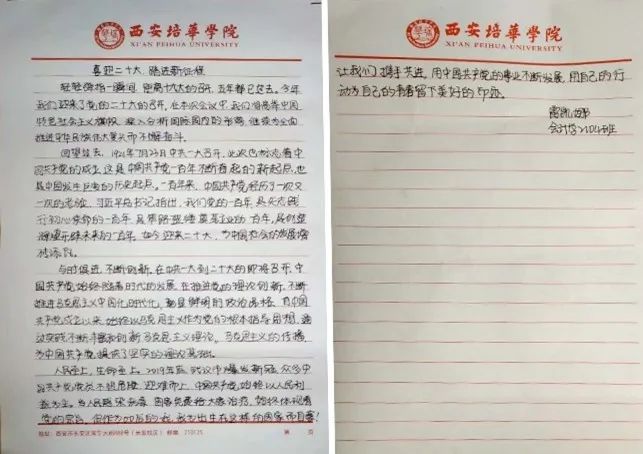 西安培華学院
XI'AN PEIHUA UNIVERSITY
喜迎二十大,踏进新征程
轻轻弹指一瞬间,距离十九大的召开,五年都已过去。今年
我们迎来了党的二十大的召开,在本次会议中,我们将高举中国
特色社会主义旗帜,深入分析国际国内的形势,继续为全面
推进中华民族伟大复兴而不懈奋斗。
回望过去,1921年7月23日中共一大召开,此次也标志着中
国共产党的成立,这是中国共产党一百年不断奋起的新起点,也
是中国发生巨变的历史起点。一百年来,中国共产党经历了一次又
一次的考验,习近平总书记指出,我们党的一百年,是矢志践
行初心使命的一百年,是筚路蓝缕奠基立业的一百年,是创造
辉煌开辟未来的一百年。如今迎来二十大,为中国社会的发展增
砖添瓦。
与时俱进,不断创新。在中共一大到二十大的即将召开,中
国共产党始终随着时代的发展,在推进党的理论创新,不断
推进马克思主义中国化时代化,都是鲜明的政治品格。自中国
共产党成立以来,始终以马克思主义作为党的根本指导思想,通
过实践不断丰富和创新马克思主义理论。马克思主义的传播,
为中国共产党提供了坚实的理论基础。
人民至上,生命至上。2019年底,武汉市爆发新冠,众多中
国共产党党员不畏危险,迎难而上,中国共产党始终以人民利
益为主。当人民感染病毒,国家免费给大家治疗,始终体现着
党的宗旨。作为00后的我,我为出生在这样的国家而自豪!
地址:西安市长安区常宁大街888号(长安校区) 邮编:710125 第 页
西安培華学院
XI'AN PEIHUA UNIVERSITY
让我们携手共进,用中国共产党的事业不断发展,用自己的行
动为自己的青春留下美好的印迹。
会计学2104班